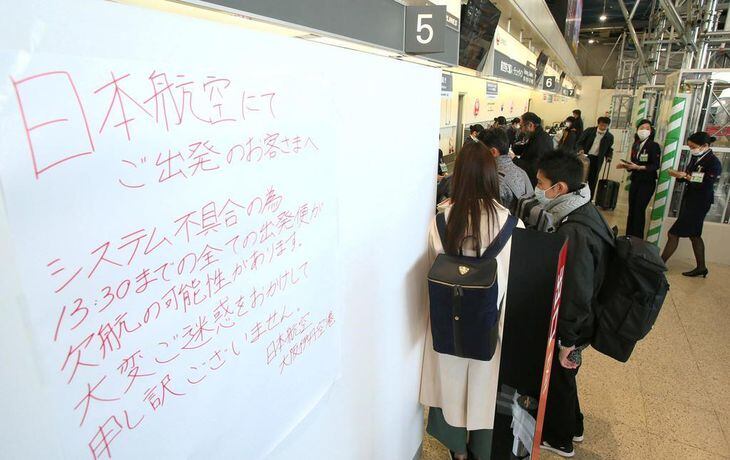 日本航空にて
ご出発のお客さまへ
システム不具合の為
13:30までの全ての出発便が
欠航の可能性があります。
大変ご迷惑をおかけして
申し訳ございません。
日本航空
5
6